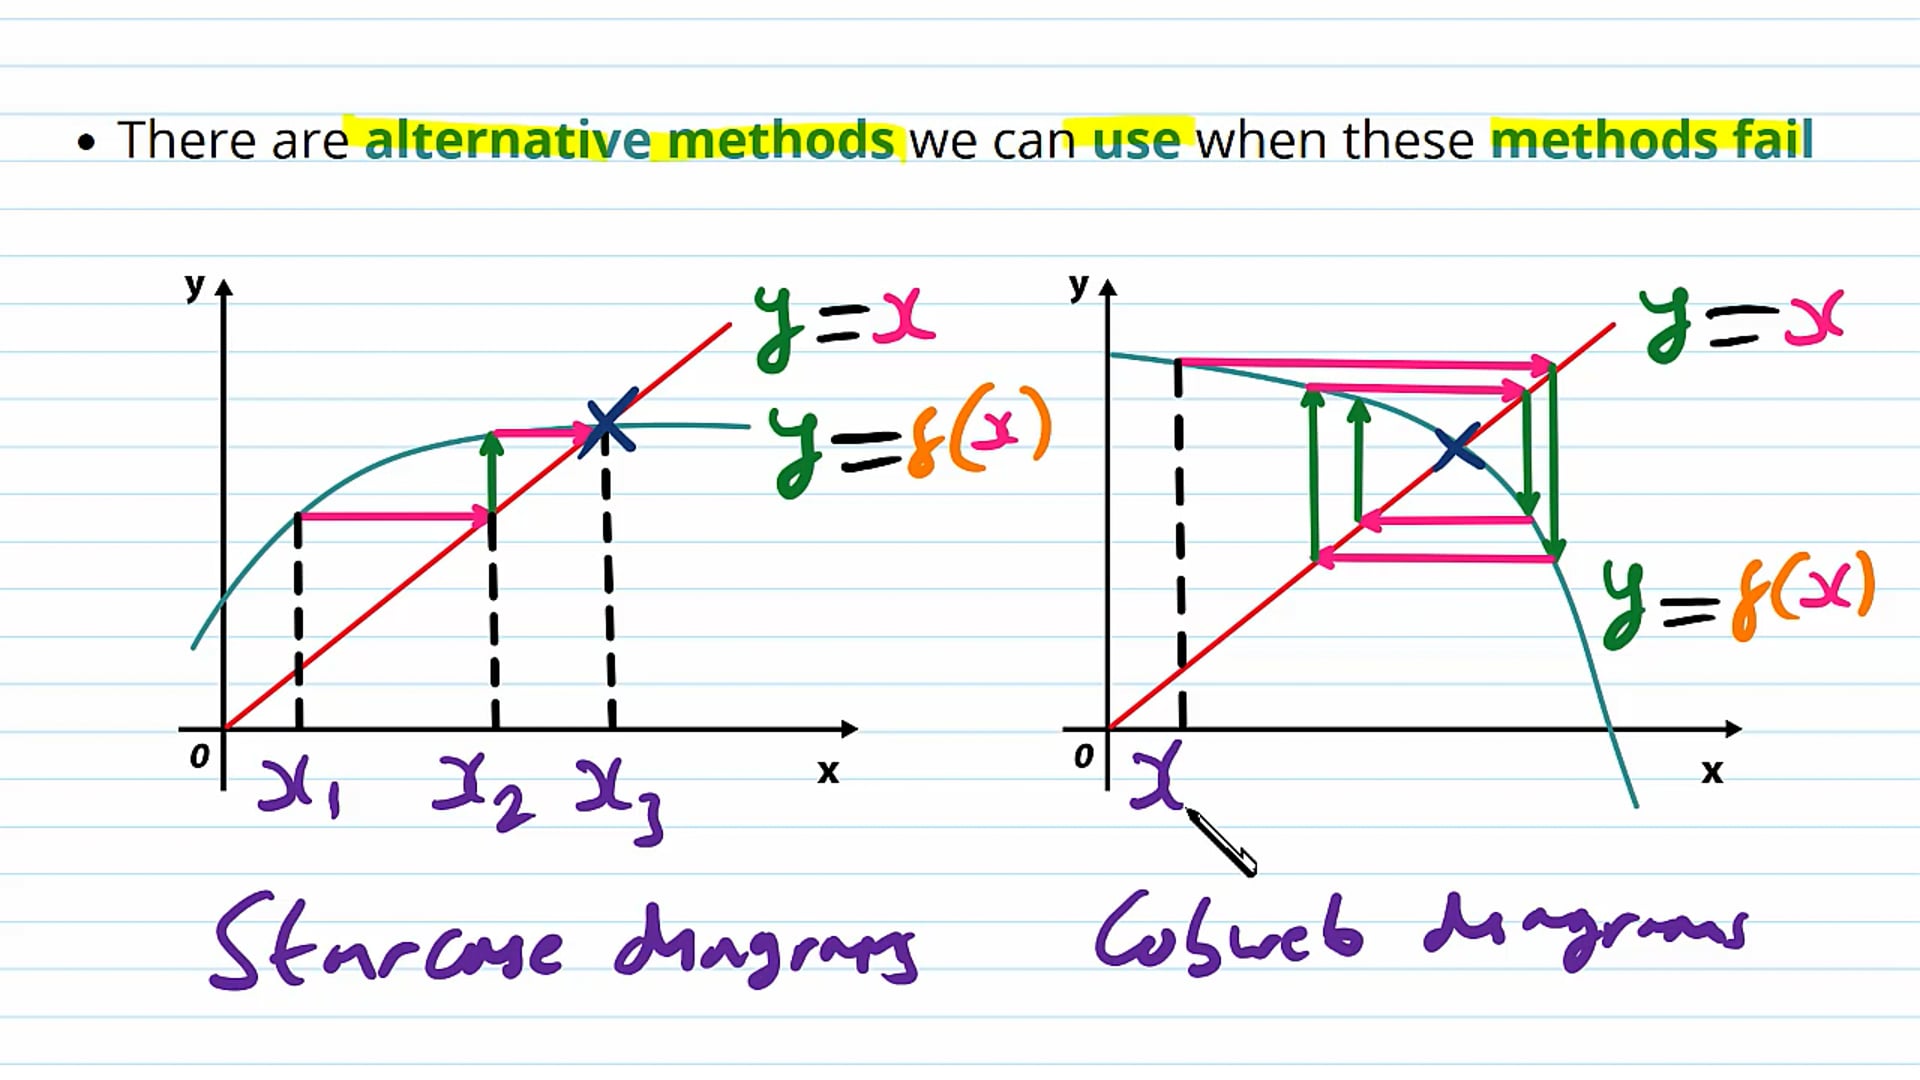 • There are alternative methods we can use when these methods fail
y
y = x
y = f(x)
0
x
x₁ x₂ x₃
Staircase diagrams
y
y = x
y = f(x)
0
x
x
Cobweb diagrams